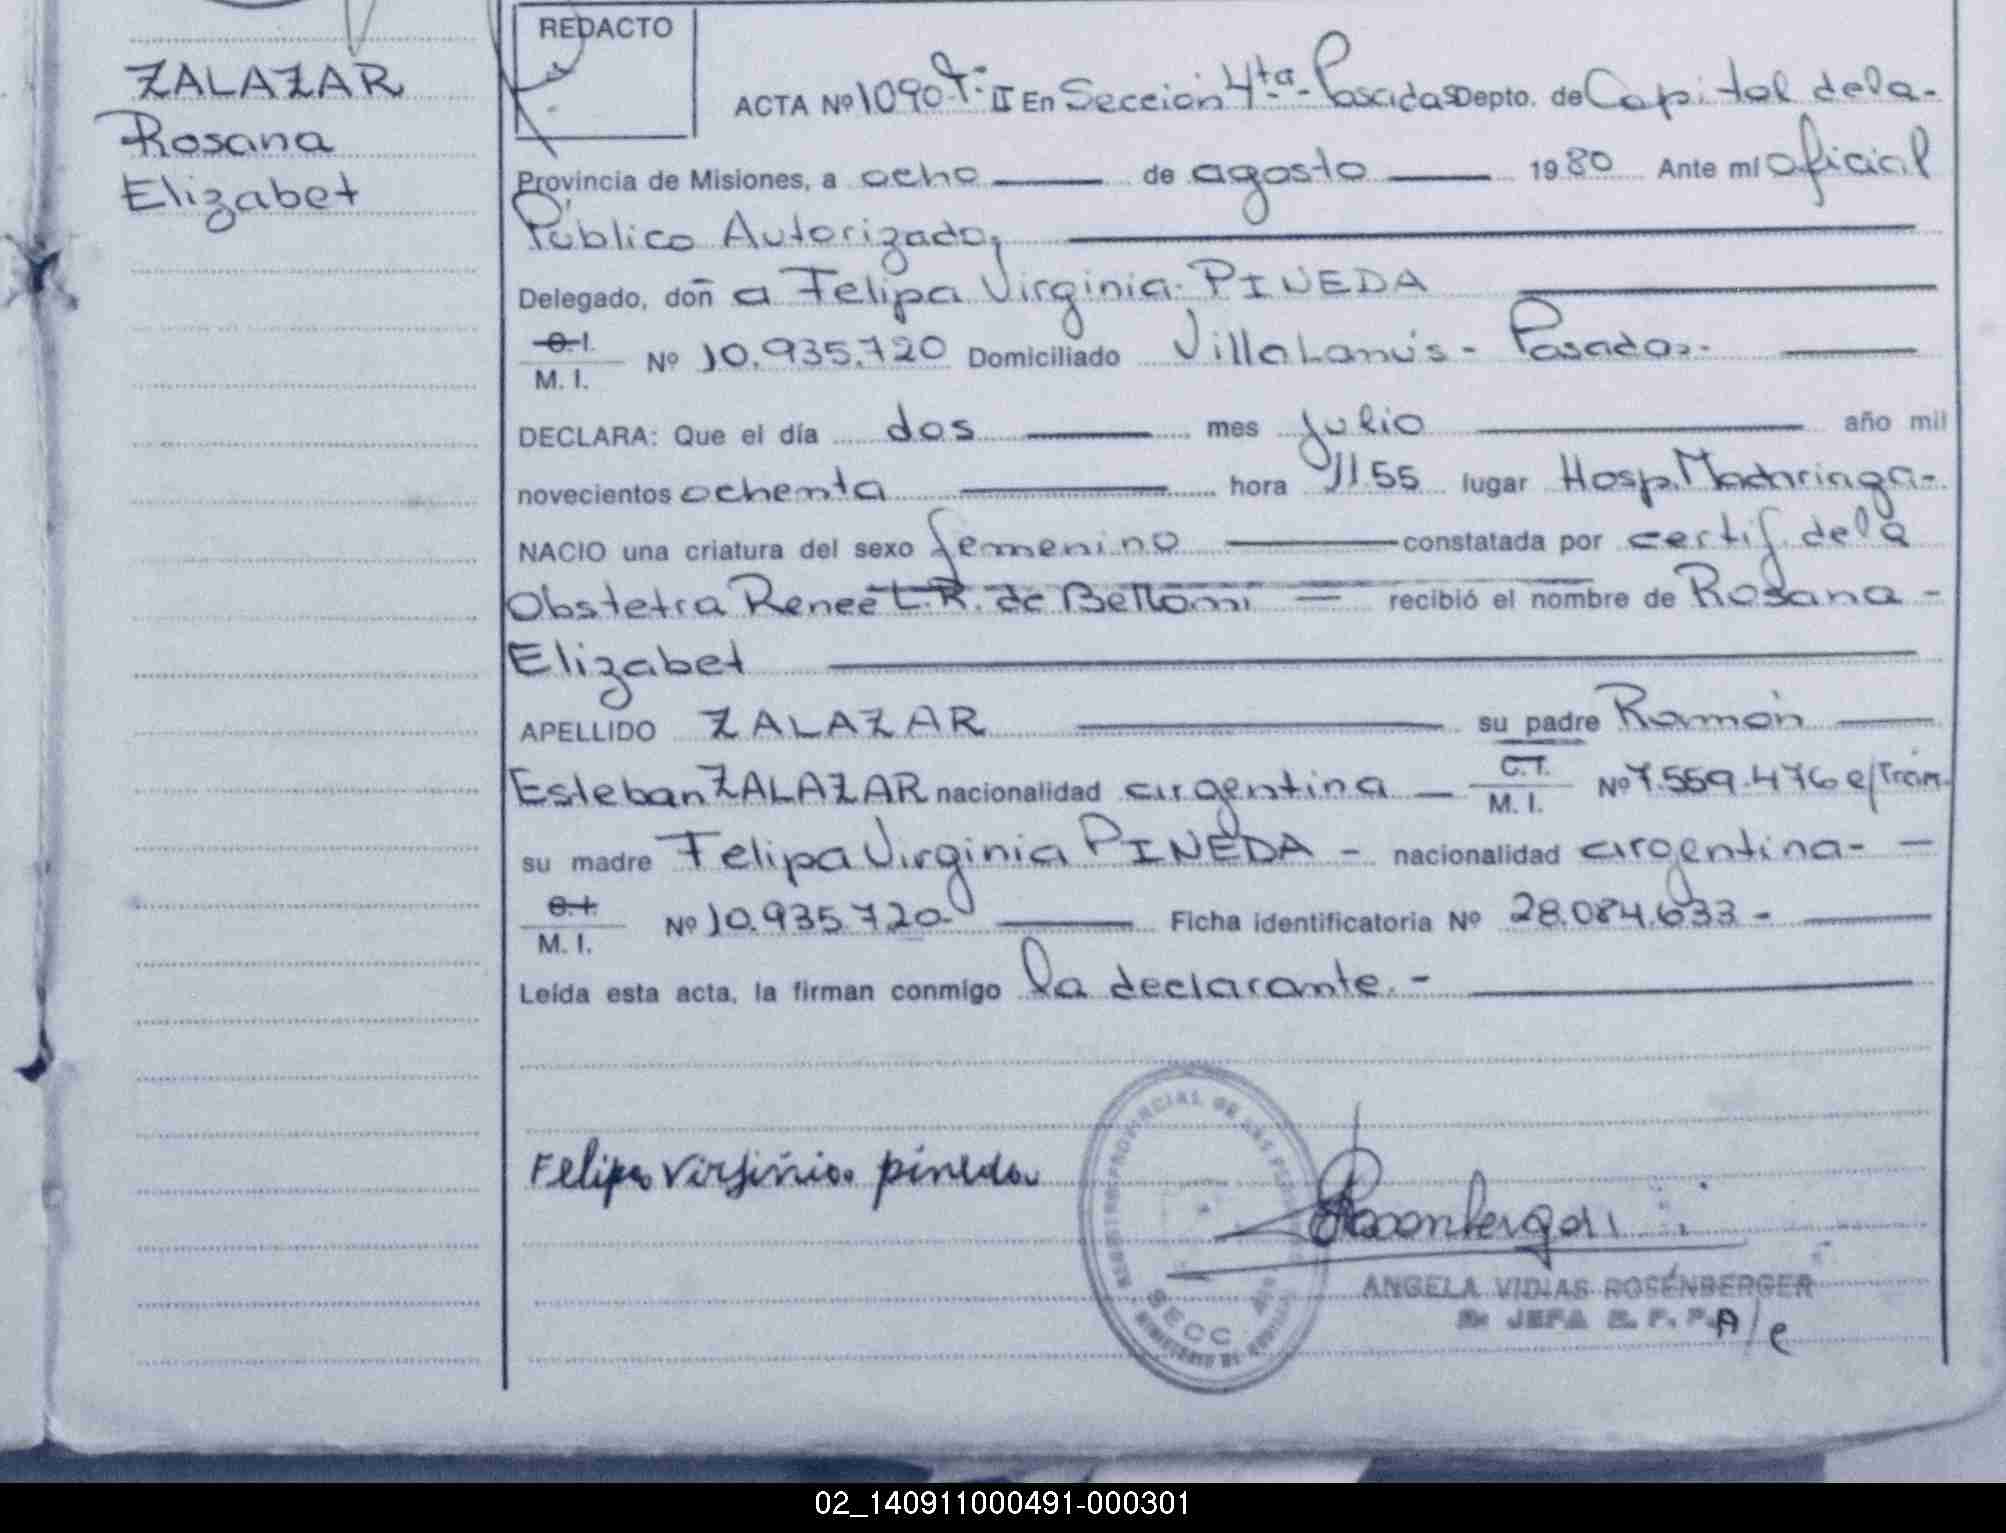 ZALAZAR
Rosana
Elizabet
REDACTO
ACTA Nº 1090 T- II En Sección 4ta- Posadas Depto. de Capital de la-
Provincia de Misiones, a ocho de agosto 1980 Ante mí Oficial
Público Autorizado,
Delegado, doñ a Felipa Virginia PINEDA
C.I.
M. I. Nº 10.935.720 Domiciliado Villa Lanús - Posadas.-
DECLARA: Que el día dos mes julio año mil
novecientos ochenta hora 11.55 lugar Hosp. Madariaga-
NACIO una criatura del sexo femenino constatada por certif. de la
Obstetra Renee L.R. de Bettomi recibió el nombre de Rosana -
Elizabet
APELLIDO ZALAZAR su padre Ramón
Esteban ZALAZAR nacionalidad argentina C.I.
M. I. Nº 7.559.476 e/Trám.
su madre Felipa Virginia PINEDA - nacionalidad argentina- -
C.I.
M. I. Nº 10.935.720 Ficha identificatoria Nº 28.084.633 -
Leída esta acta, la firman conmigo la declarante.-
Felipa Virginia pineda
REGISTRO PROVINCIAL DE LAS PERSONAS
SECC
ANGELA VIDIAS ROSENBERGER
JEFA R. P. P. A/e
02_140911000491-000301